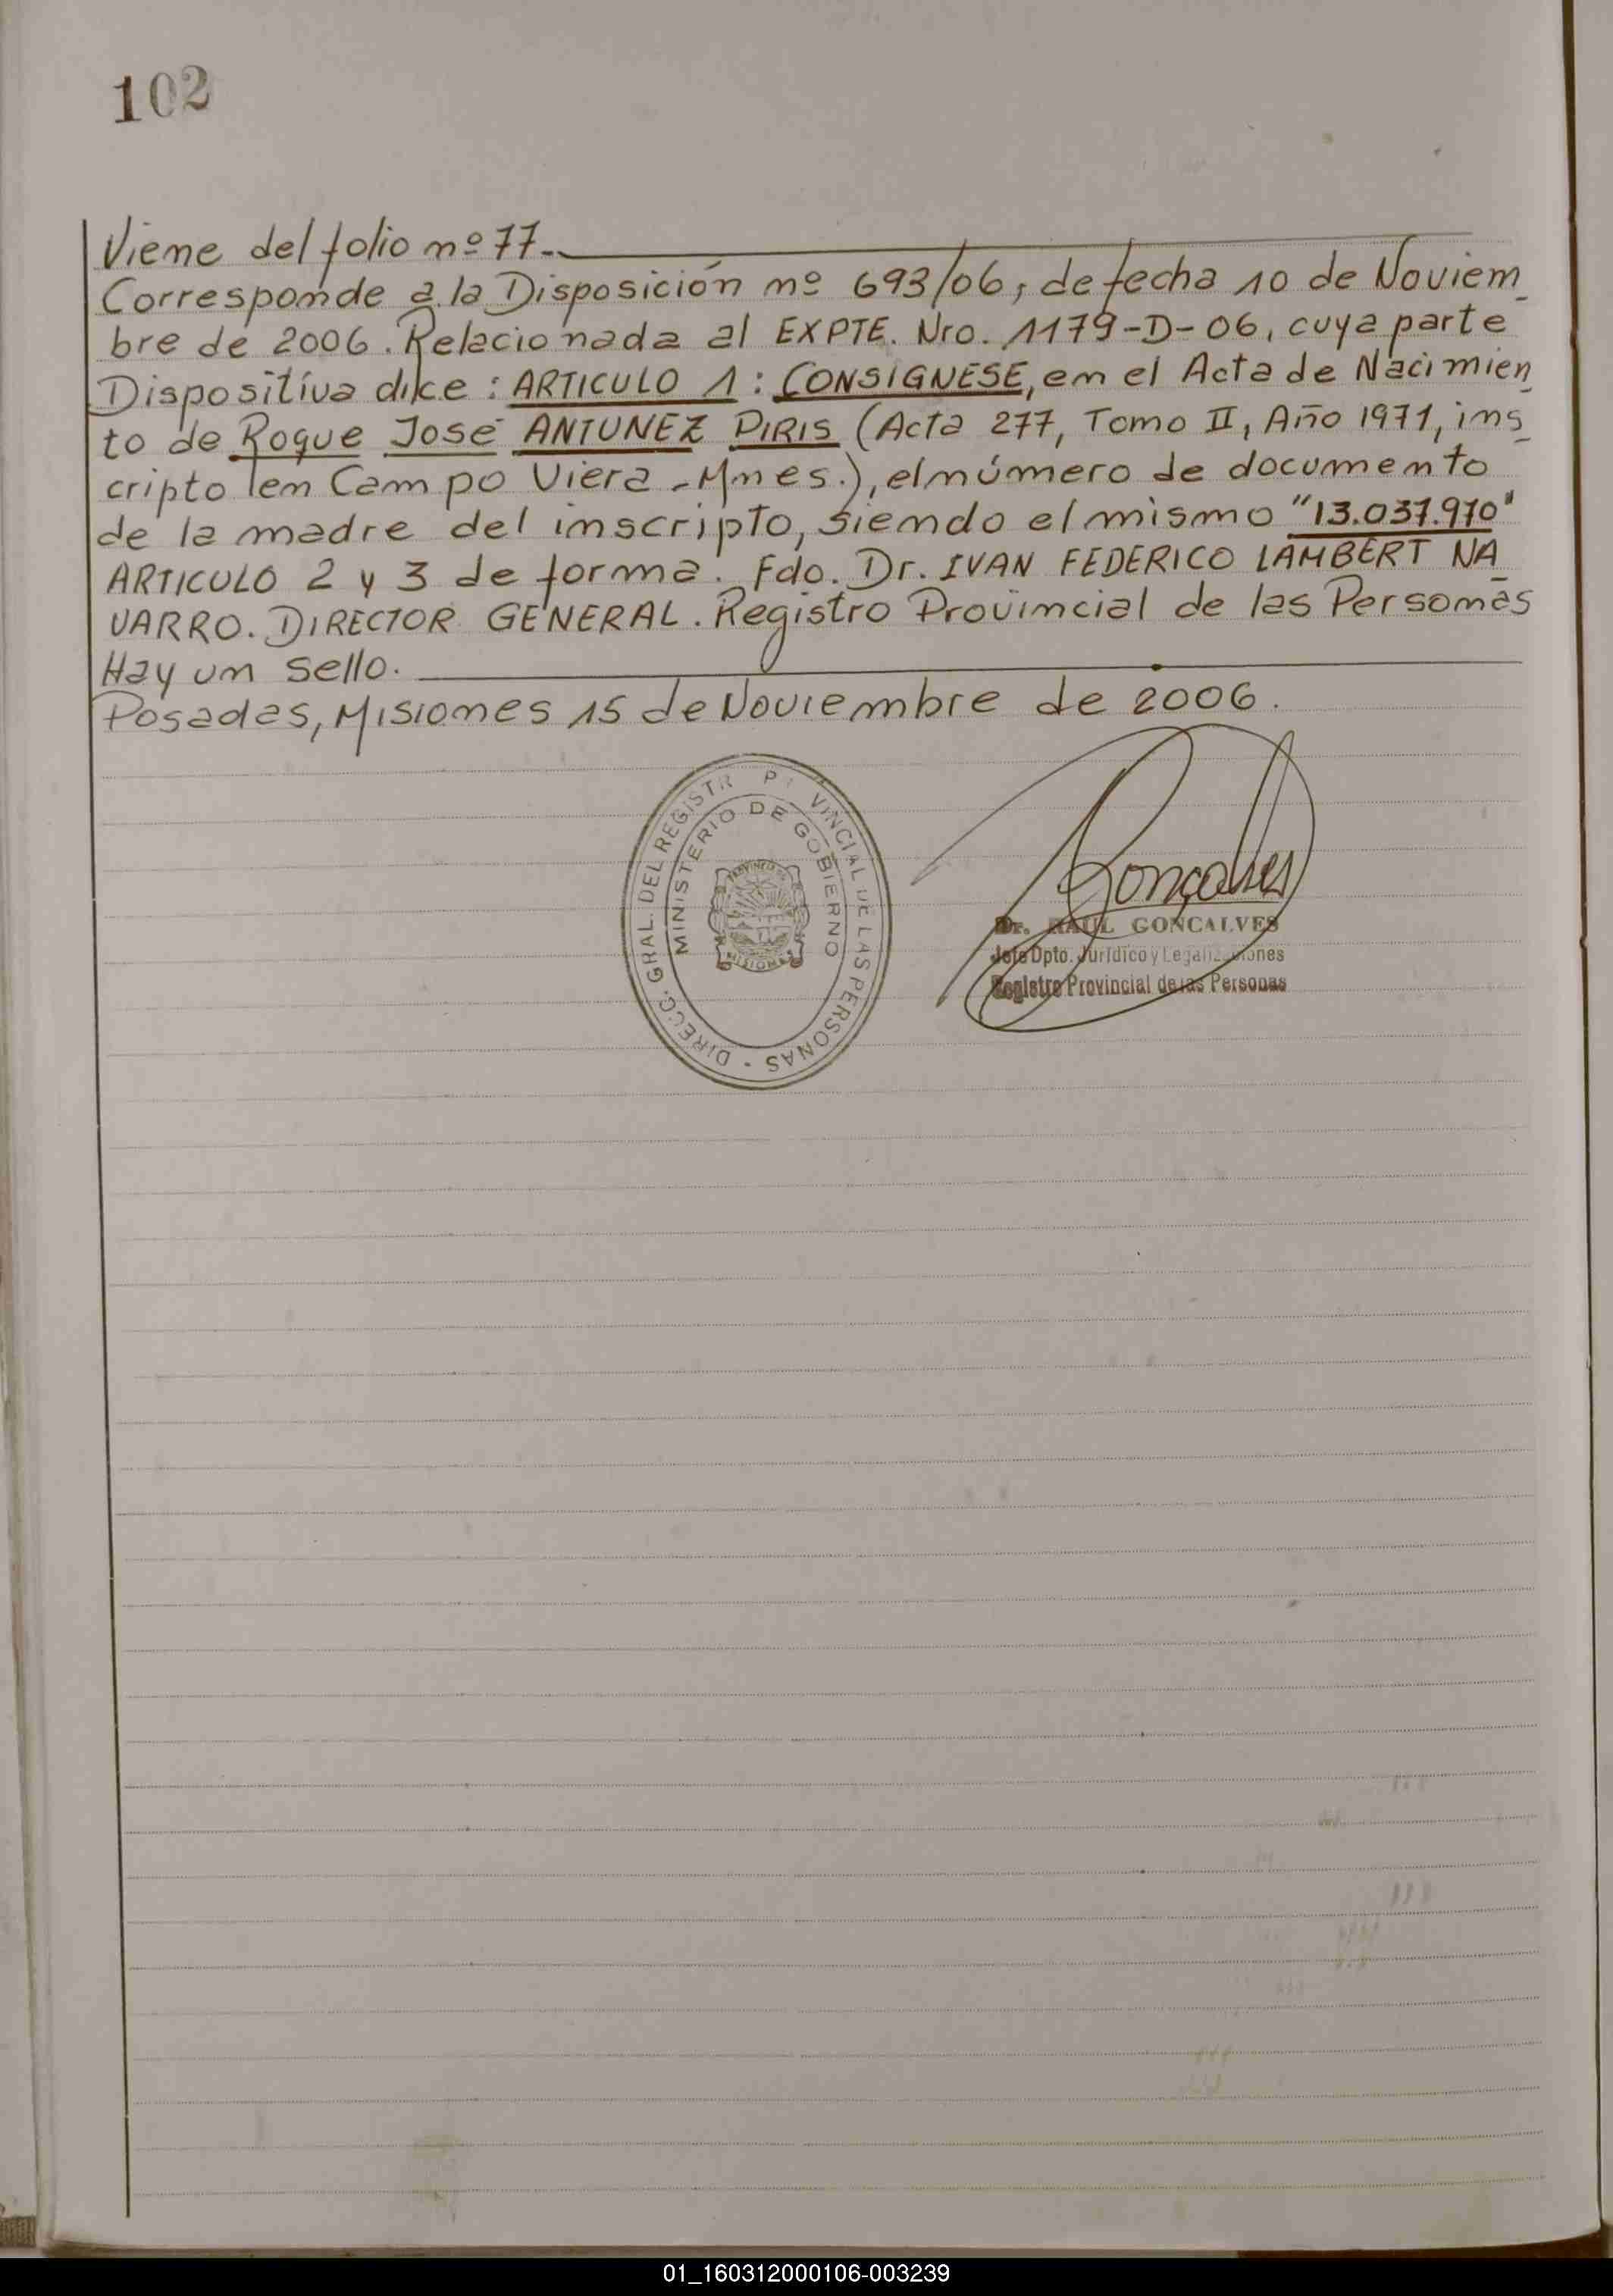 102
Viene del folio nº 77.
Corresponde a la Disposición nº 693/06, de fecha 10 de Noviem_
bre de 2006. Relacionada al EXPTE. Nro. 1179-D-06, cuya parte
Dispositiva dice: ARTICULO 1: CONSIGNESE, en el Acta de Nacimien_
to de Roque José ANTUNEZ PIRIS (Acta 277, Tomo II, Año 1971, ins_
cripto en Campo Viera - Mnes.), el número de documento
de la madre del inscripto, siendo el mismo "13.037.970"
ARTICULO 2 y 3 de forma. Fdo. Dr. IVAN FEDERICO LAMBERT NA_
VARRO. DIRECTOR GENERAL. Registro Provincial de las Personas
Hay un sello.
Posadas, Misiones 15 de Noviembre de 2006.
DIRECC. GRAL. DEL REGISTR P VINCIAL DE LAS PERSONAS -
MINISTERIO DE GOBIERNO
MISIONES
Goncalves
Dr. RAUL GONCALVES
Jefe Dpto. Jurídico y Legalizaciones
Registro Provincial de las Personas
01_160312000106-003239